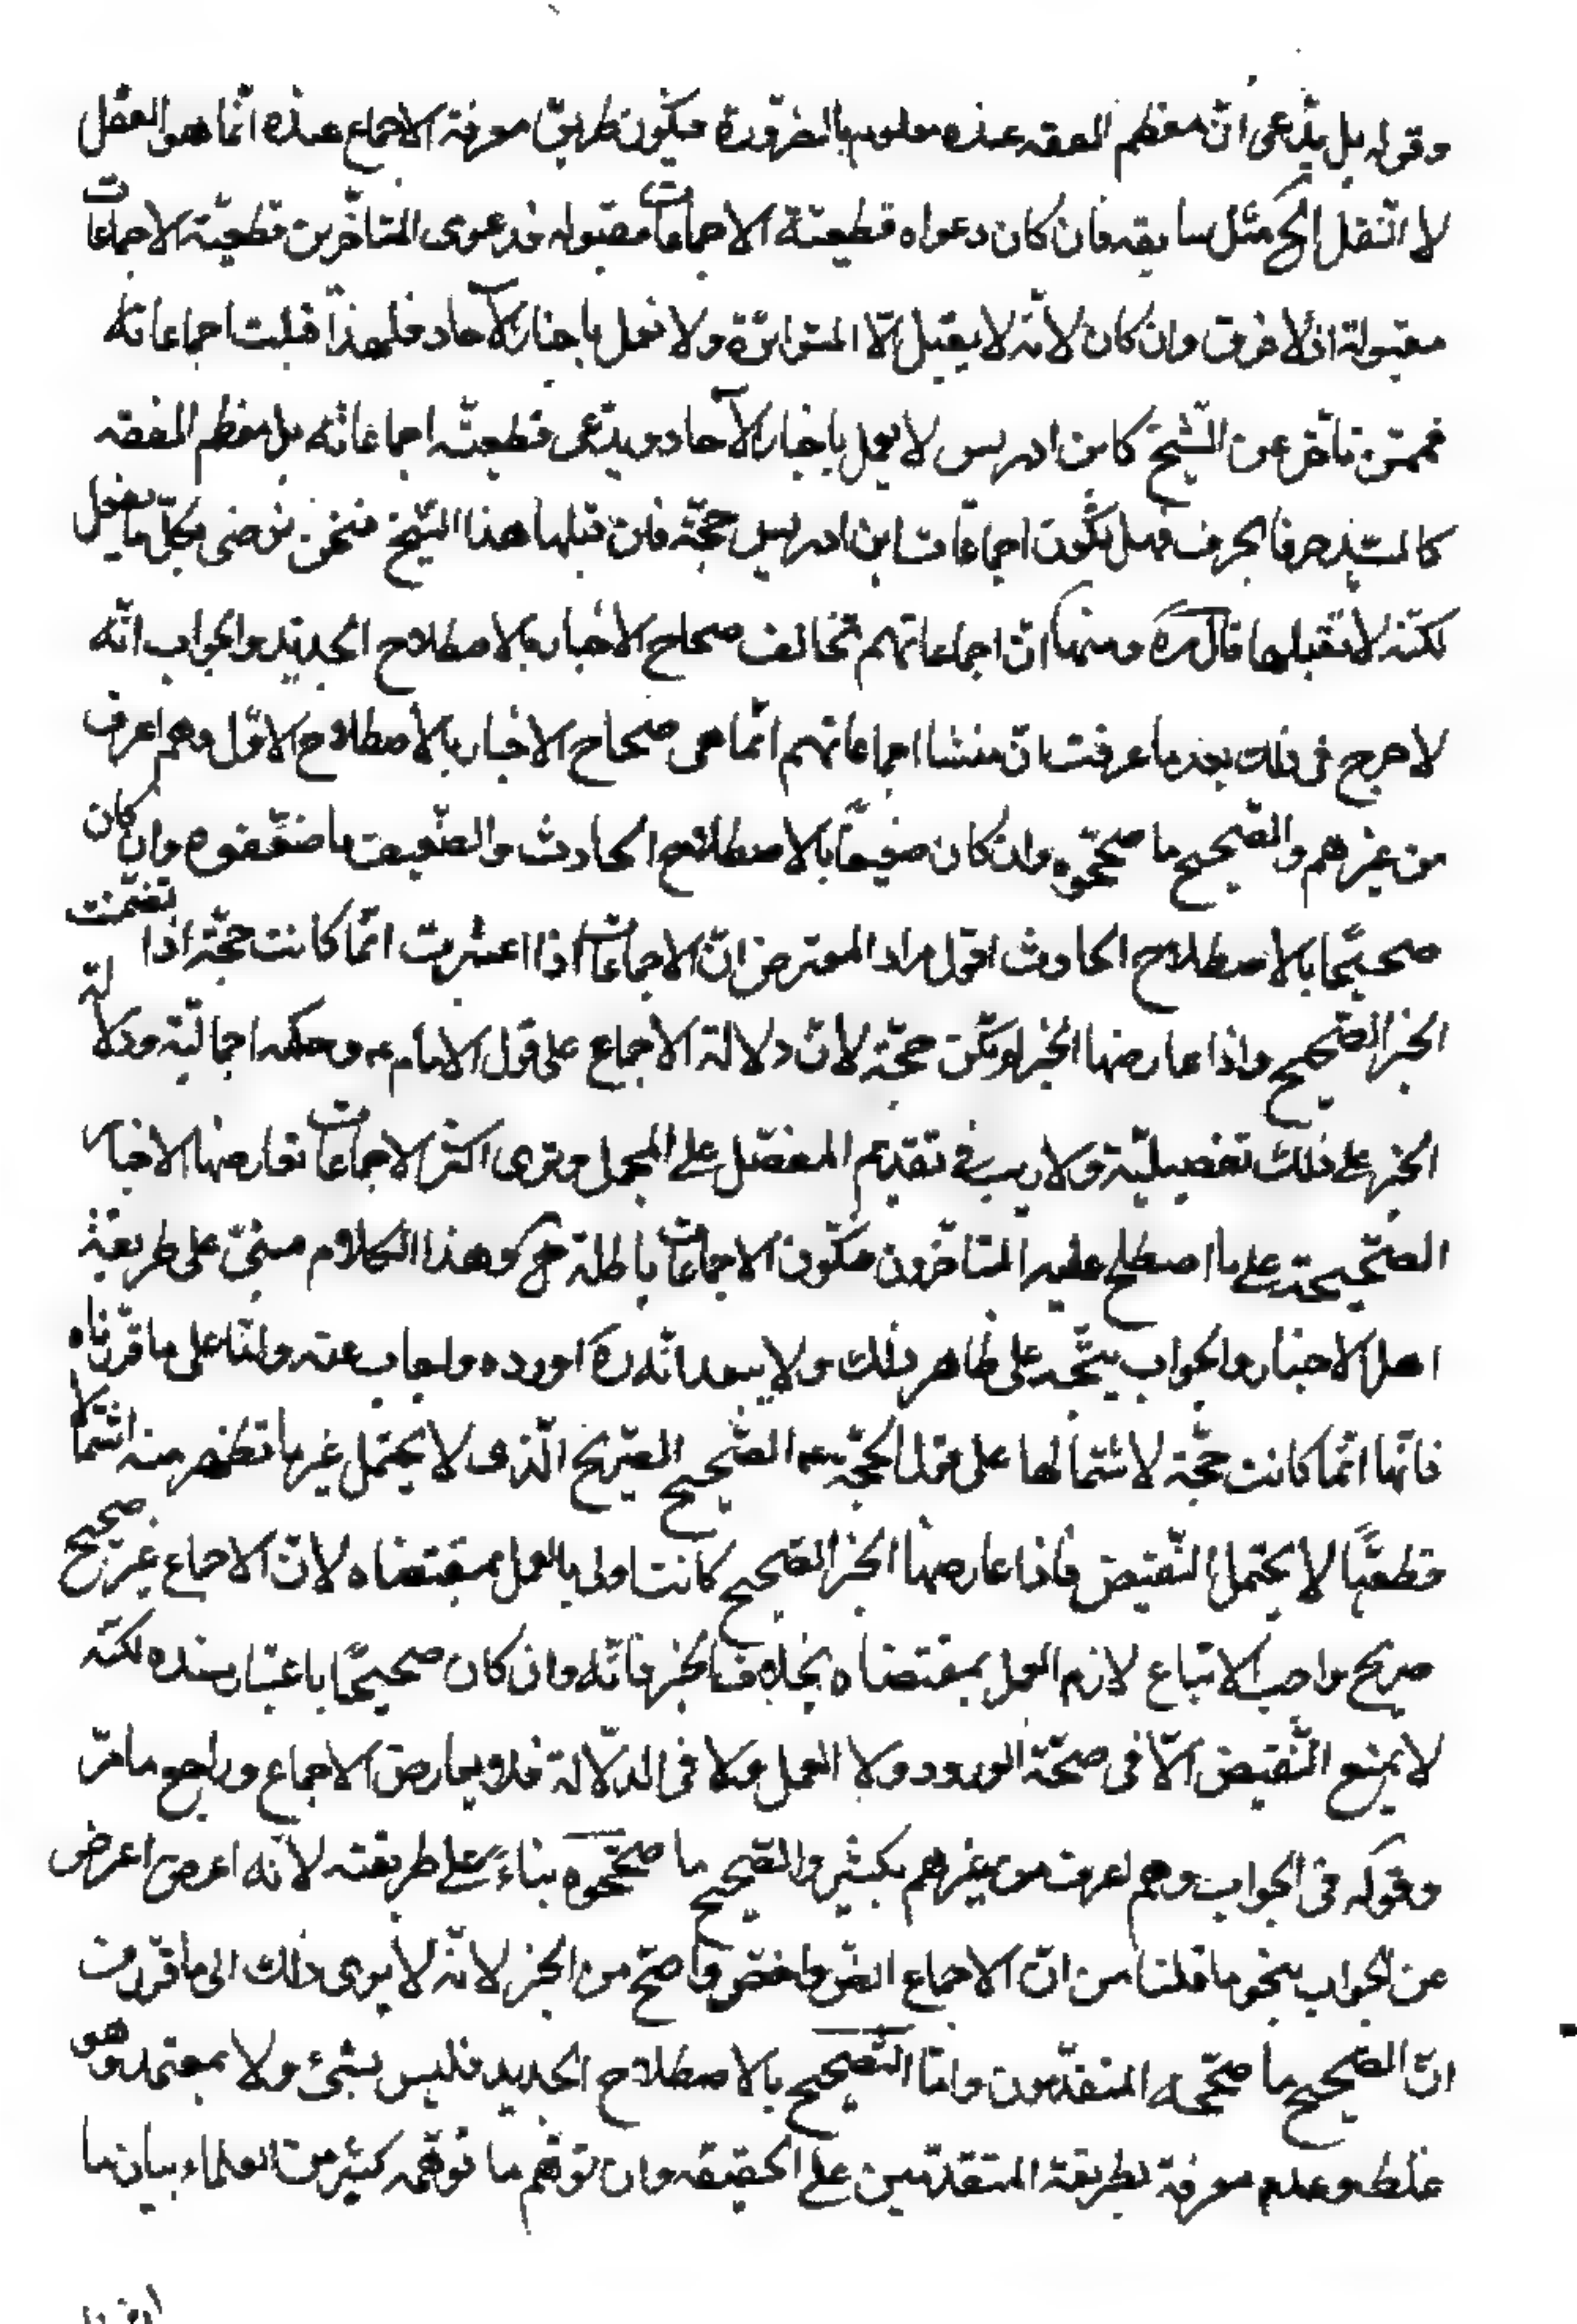 وقوله بل يدّعى انّ معظم الفقه عنده معلوم بالضّرورة فيكون طريق معرفة الاجماع عنده انّما هو العقل
لا النّقل الخ مثل سابقه فان كان دعواه قطعيّة الاجماعات مقبوله فدعوى المتاخّرين قطعيّة الاجماعات
مقبولة اذ لا فرق وان كان لانّه لا يقبل الّا المتواترة ولا يعمل باخبار الآحاد فلهذا قبلت اجماعاته
فممّن تاخّر عن الشّيخ كابن ادريس لا يعمل باخبار الآحاد ويدّعى قطعيّة اجماعاته بل معظم الفقه
كالسّيد حرفا بحرف فهل تكون اجماعات ابن ادريس حجّة فان قبلها هذا الشّيخ فنحن نرضى بكلّ ما يفعل
لكنّه لا يقبلها قال ره ومنها انّ اجماعاتهم تخالف صحاح الاخبار بالاصطلاح الجديد والجواب انّه
لا حرج فى ذلك بعد ما عرفت انّ منشا اجماعاتهم انّما هى صحاح الاخبار بالاصطلاح الاوّل وهم اعرف
من غيرهم والصّحيح ما صحّحوه وان كان ضعيفًا بالاصطلاح الحادث والضّعيف ما ضعّفوه وان كان
صحيحًا بالاصطلاح الحادث اقول مراد المعترض انّ الاجماعات اذا اعتبرت انّما كانت حجّة اذا تضمّنت
الخبر الصّحيح واذا عارضها الخبر لم تكن حجّة لانّ دلالة الاجماع على قول الامام ع وحكمه اجماليّة ودلالة
الخبر على ذلك تفصيليّة ولا ريب فى تقديم المفصّل على المجمل وترى اكثر الاجماعات تعارضها الاخبار
الصّحيحة على ما اصطلح عليه المتاخّرون فتكون الاجماعات باطلة ح وهذا الكلام مبنىّ على طريقة
اهل الاخبار والجواب يتّجه على ظاهر ذلك ولا يبعد انّه ره اورده واجاب عنه وامّا على ما قرّرناه
فانّها انّما كانت حجّة لاشتمالها على قول الحجّة ع الصّحيح الصّريح الّذى لا يحتمل غير ما تظهر منه اشتمالا
قطعيًّا لا يحتمل النّقيض فاذا عارضها الخبر الصّحيح كانت اولى بالعمل بمقتضاه لانّ الاجماع غير صحيح
صريح واجب الاتباع لازم العمل بمقتضاه بخلاف الخبر فانّه وان كان صحيحًا باعتبار سنده لكنّه
لا يمنع النّقيض الّا فى صحّة الورود ولا العمل ولا فى الدّلالة فلا يعارض الاجماع وراجع ما مرّ
وقوله فى الجواب وهم اعرف من غيرهم بكثير والصّحيح ما صحّحوه بناءً على طريقته لانّه اعرض اعرض
عن الجواب بنحو ما قلنا من انّ الاجماع انصّ واخصّ واصحّ من الخبر لانّه لا يرى ذلك الى ما قرّر من
انّ الصّحيح ما صحّحه المتقدّمون وامّا التّصحيح بالاصطلاح الجديد فليس بشىء ولا بمعتمد وهو
غلط وعدم معرفة بطريقة المتقدّمين على الحقيقه وان توهّم ما توهّمه كثير من العلماء بيان ما